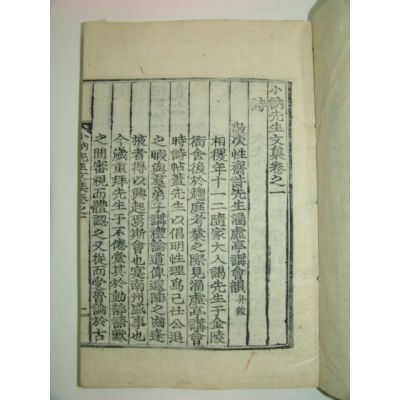 小訥先生文集卷之一
詩
敬次性齋許先生涵虛亭講會韻 并敍
相稷年十一二隨家大人謁先生于金陵
衙舍後於趨庭考業之際見涵虛亭講會
時詩帖蓋先生以倡明性理爲己任公退
之暇與羣弟子講禮論道俾遐陬之齒逢
掖者得以興起焉斯會也寔南州盛事也
今歲重拜先生于不倦堂其於動靜語默
之間審視而體認之又從而受魯論於古
小訥先生文集卷之一
一